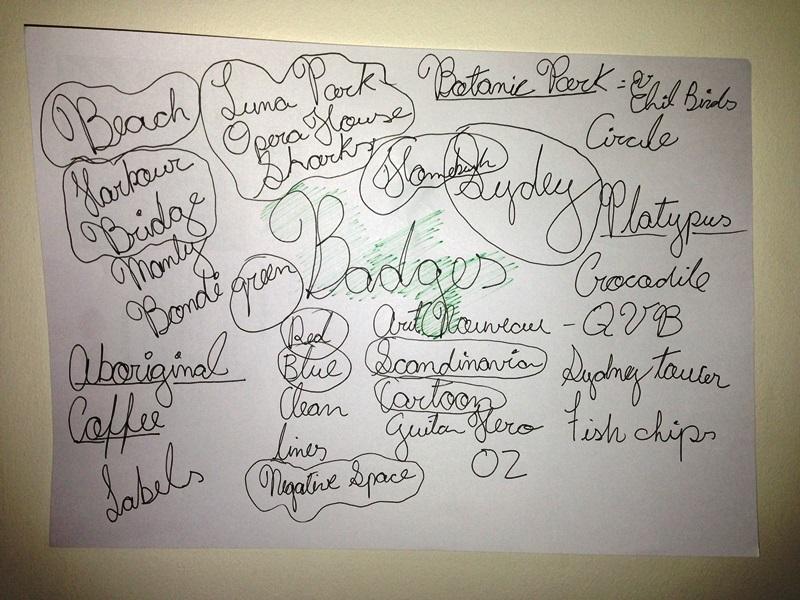 Beach
Luna Park
Opera House
Sharks
Botanic Park = ev
Ehil Birds
Circule
Harbour
Bridge
Homebush
Sydey
Platypus
Manly
Bondi
green
Badges
Crocadile
Red
Art Nouveau - QVB
Aboriginal
Blue
Scandinavian
Sydney tower
Coffee
Clean
Cartoon
Guitar Hero
Fish chips
Lines
OZ
Labels
Negative Space